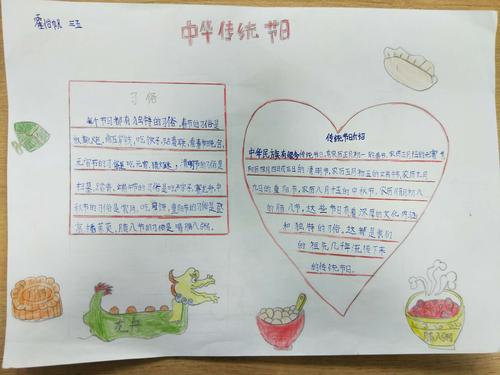 中华传统节日
三五
习俗
每个节日都有独特的习俗,春节的习俗是
放鞭炮、给压岁钱、吃饺子、贴春联、看春晚,
元宵节的习俗是吃元宵、猜灯谜,清明节的习俗是
扫墓、踏青,端午节的习俗是吃粽子、赛龙舟,中
秋节的习俗是赏月、吃月饼,重阳节的习俗是登
高、插茱萸,腊八节的习俗是喝腊八粥。
传统节日介绍
中华民族有很多传统节日,农历正月初一的春节,农历正月十五的元宵节
四月四日或五日的清明节,农历五月初五的端午节,农历九月
九日的重阳节,农历八月十五的中秋节,农历腊月初八
的腊八节,这些节日有着深厚的文化内涵
和独特的习俗,这都是我们
的祖先几千年流传下来
的传统节日。
龙舟
腊八粥